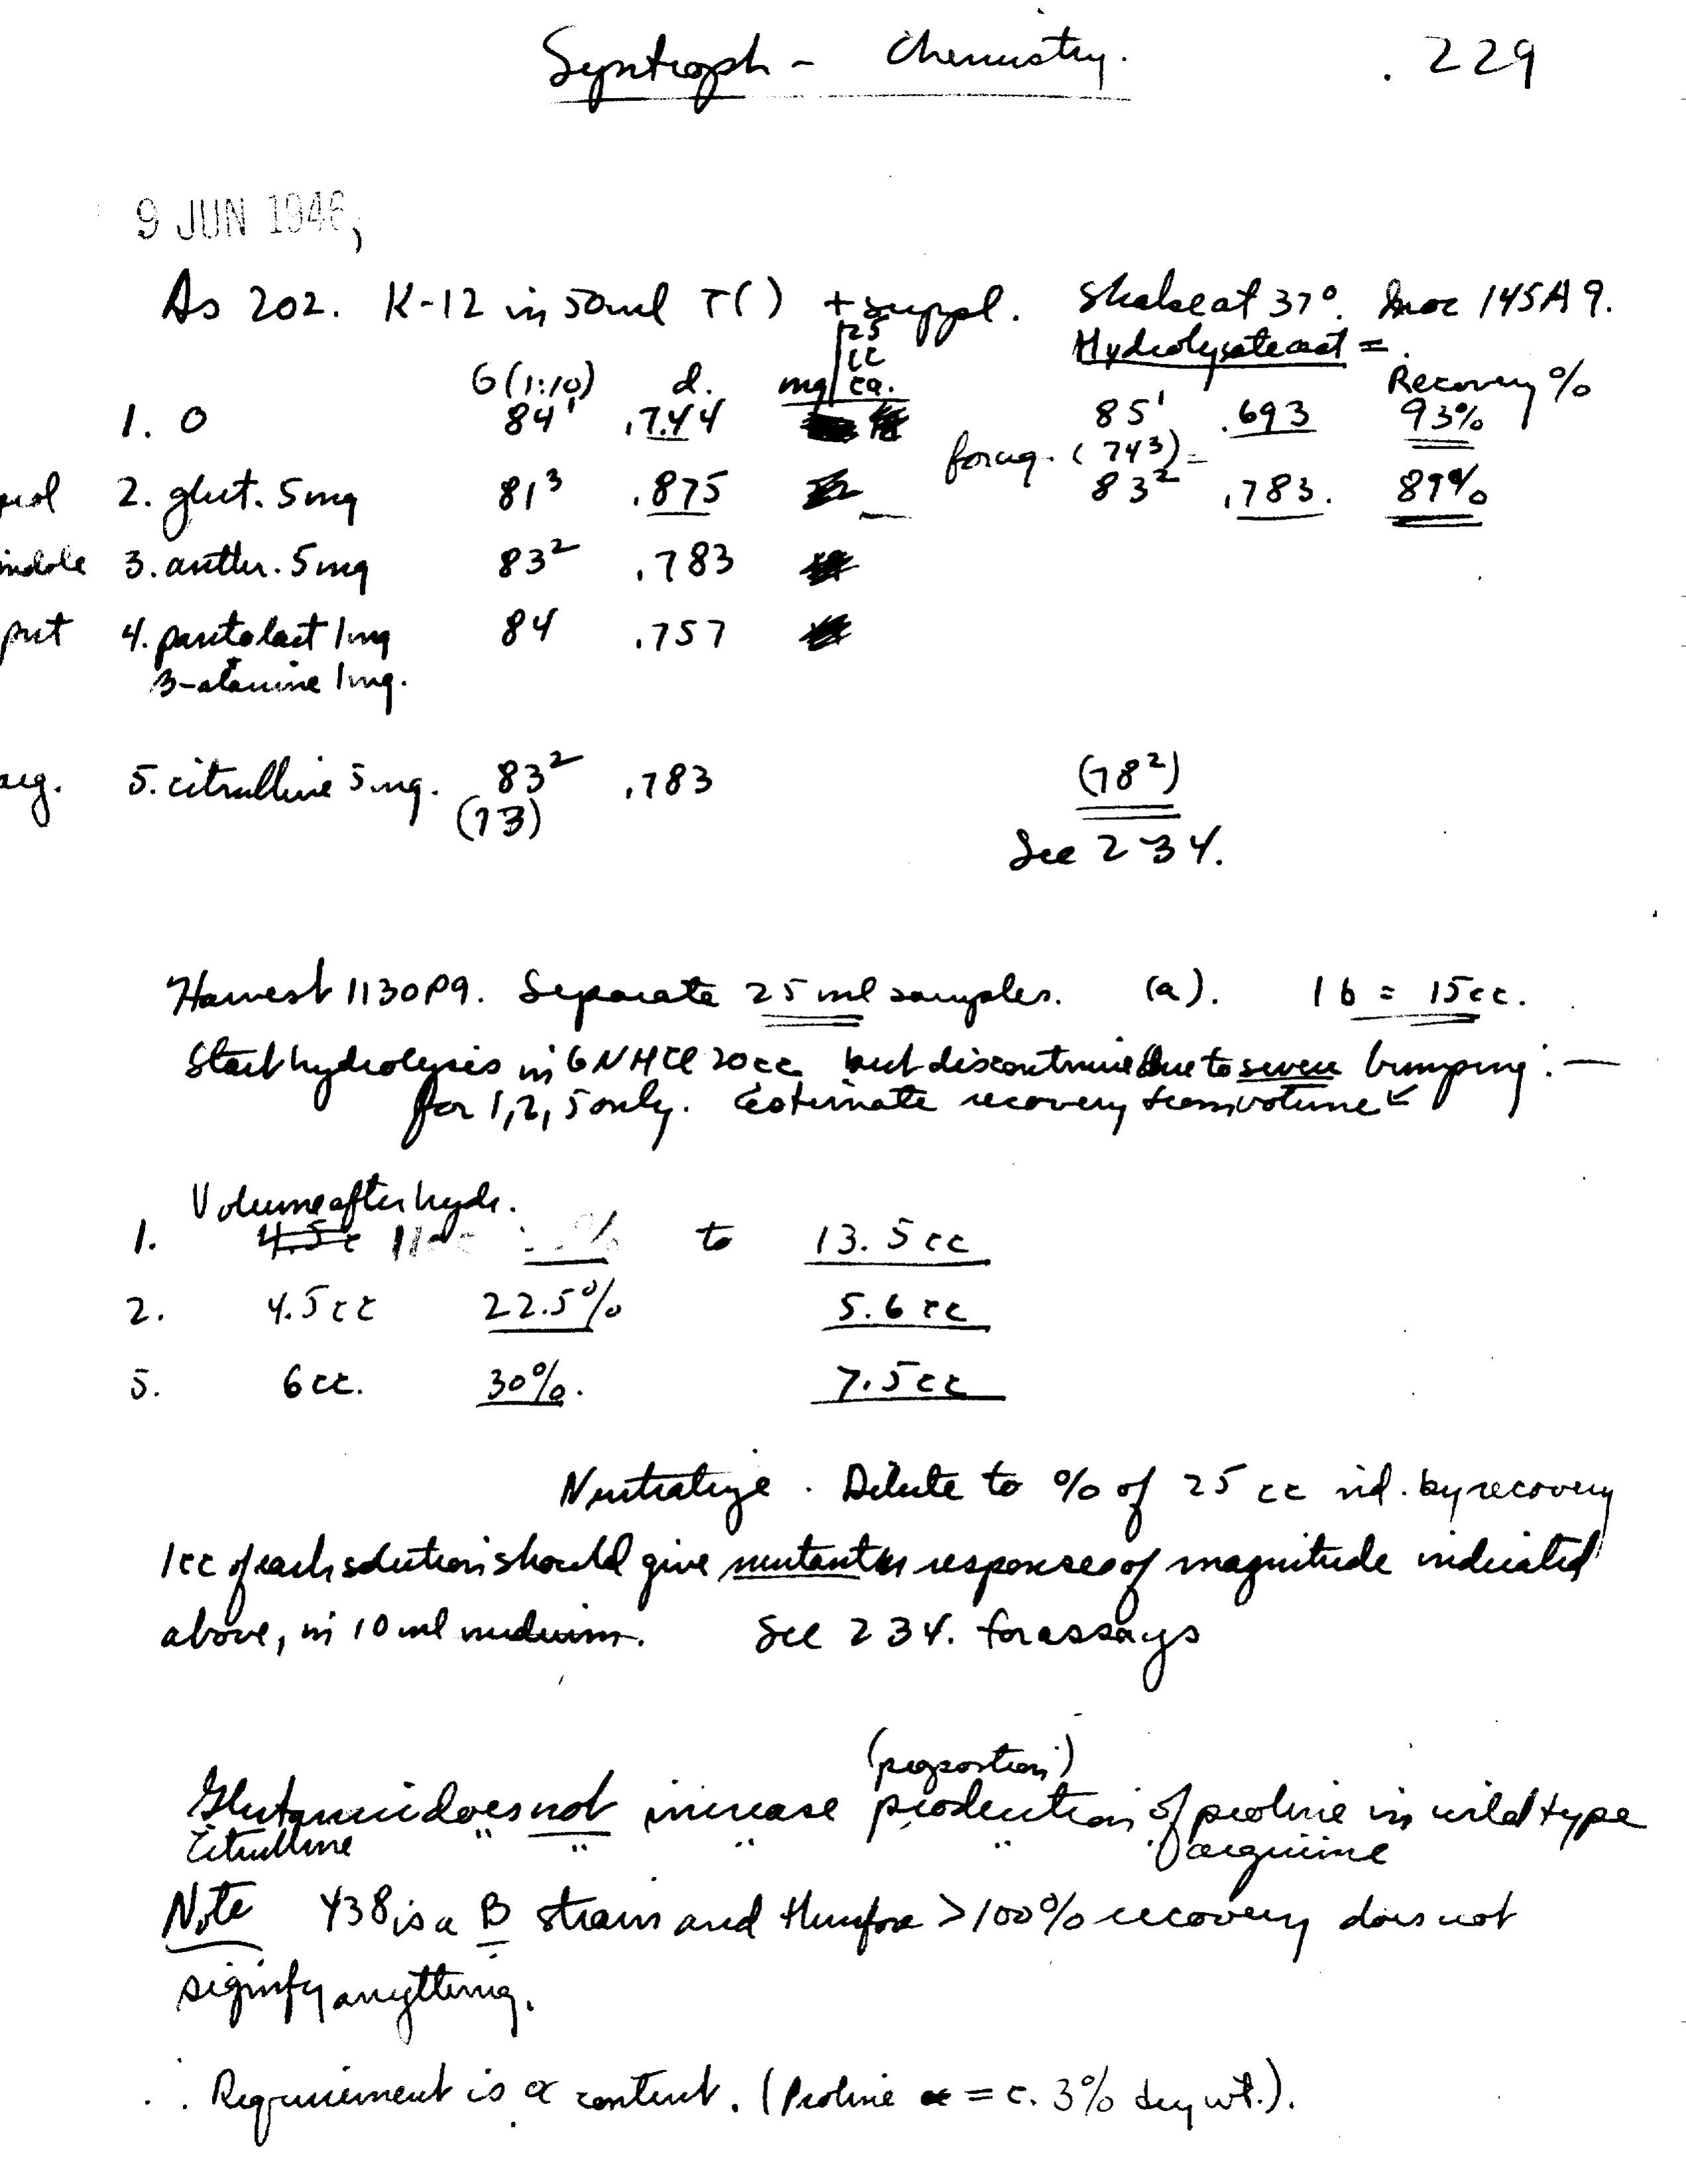 Syntroph - Chemistry. 229
9 JUN 1946,
As 202. K-12 in 50 ml T( ) + suppl. Shake at 37°. Inoc 145A9.
25
cc
Hydrolysate =
G (1:10) d. mg/ ea. Recovery %
1. 0 84¹ .744 85¹ .693 93%
for ug. (743) =
prol 2. glut. 5 mg 81³ .875 83² .783. 89%
indole 3. anthr. 5 mg 83² .783
pnt 4. pantolact 1 mg 84 .757
β-alanine 1 mg.
arg. 5. citrulline 5 mg. 83² .783 (78²)
(73)
See 234.
Harvest 1130P9. Separate 25 ml samples. (a). 1b = 15cc.
Start hydrolysis in 6N HCl 20cc but discontinue due to severe bumping: —
for 1, 2, 5 only. Estimate recovery from volume
Volume after hydr.
1. 4.5c 11 cc % to 13.5cc
2. 4.5cc 22.5% 5.6 cc
5. 6cc. 30%. 7.5cc
Neutralize. Dilute to % of 25 cc ind. by recovery
1cc of each solution should give mutants responses of magnitude indicated
above, in 10 ml medium. See 234. for assays
(proportion)
Glutamic does not increase production of proline in wild type
Citrulline " " " " " arginine
Note Y38 is a B strain and therefore >100% recovery does not
signify anything.
∴ Requirement is α content. (Proline α = c. 3% dry wt.).